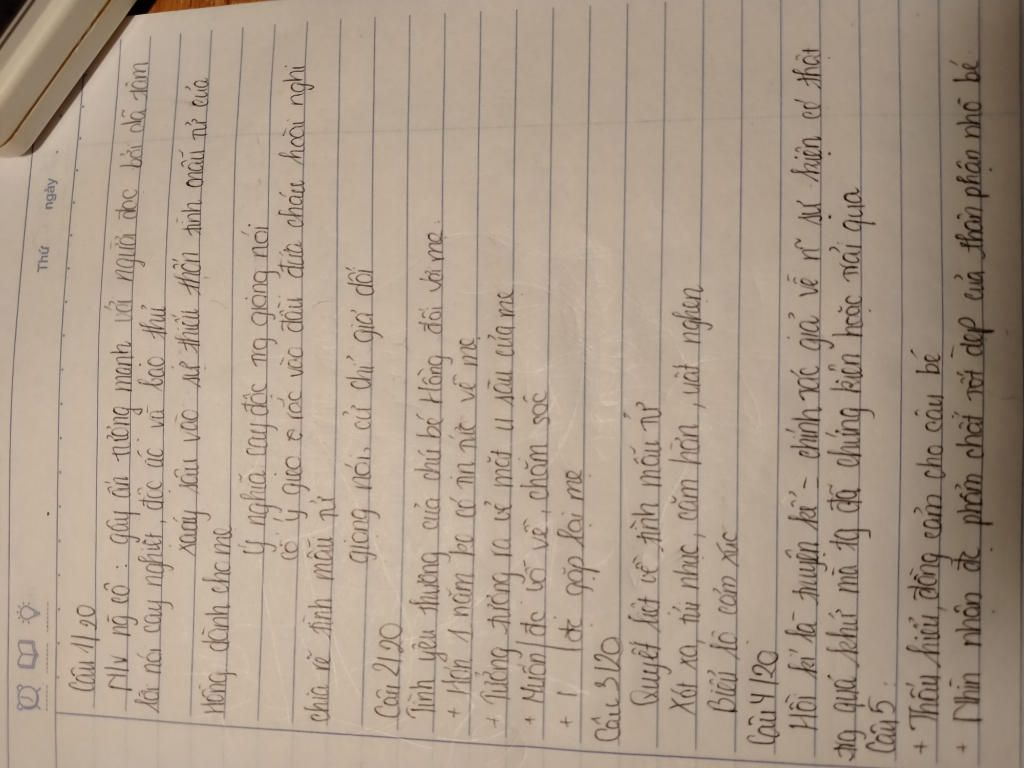 Thứ
ngày
Câu 1/20
NV ng cô : gây ấn tượng mạnh với người đọc bởi dã tâm
lời nói cay nghiệt, độc ác và bao thủ
xoáy sâu vào sự thiếu thốn tình mẫu tử của
Hồng dành cho mẹ
Ý nghĩa cay độc ng giọng nói
cố ý gieo rắc vào đầu đứa cháu hoài nghi
chia rẽ tình mẫu tử
giọng nói, cử chỉ giả dối
Câu 2/20
Tình yêu thương của chú bé Hồng đối với mẹ
+ Hơn 1 năm ko có tin tức về mẹ
+ Tưởng tượng ra vẻ mặt u sầu của mẹ
+ Muốn đc vỗ về, chăm sóc
+ đc gặp lại mẹ
Câu 3/20
Quyết liệt về tình mẫu tử
Xót xa tủi nhục, căm hờn, uất nghẹn
Biểu lộ cảm xúc
Câu 4/20
Hồi kí là truyện kể chính tác giả về n~ sự kiện có thật
ng quá khứ mà tg đã chứng kiến hoặc trải qua
Câu 5
+ Thấu hiểu, đồng cảm cho cậu bé
+ Nhìn nhận đc phẩm chất tốt đẹp của thân phận nhỏ bé